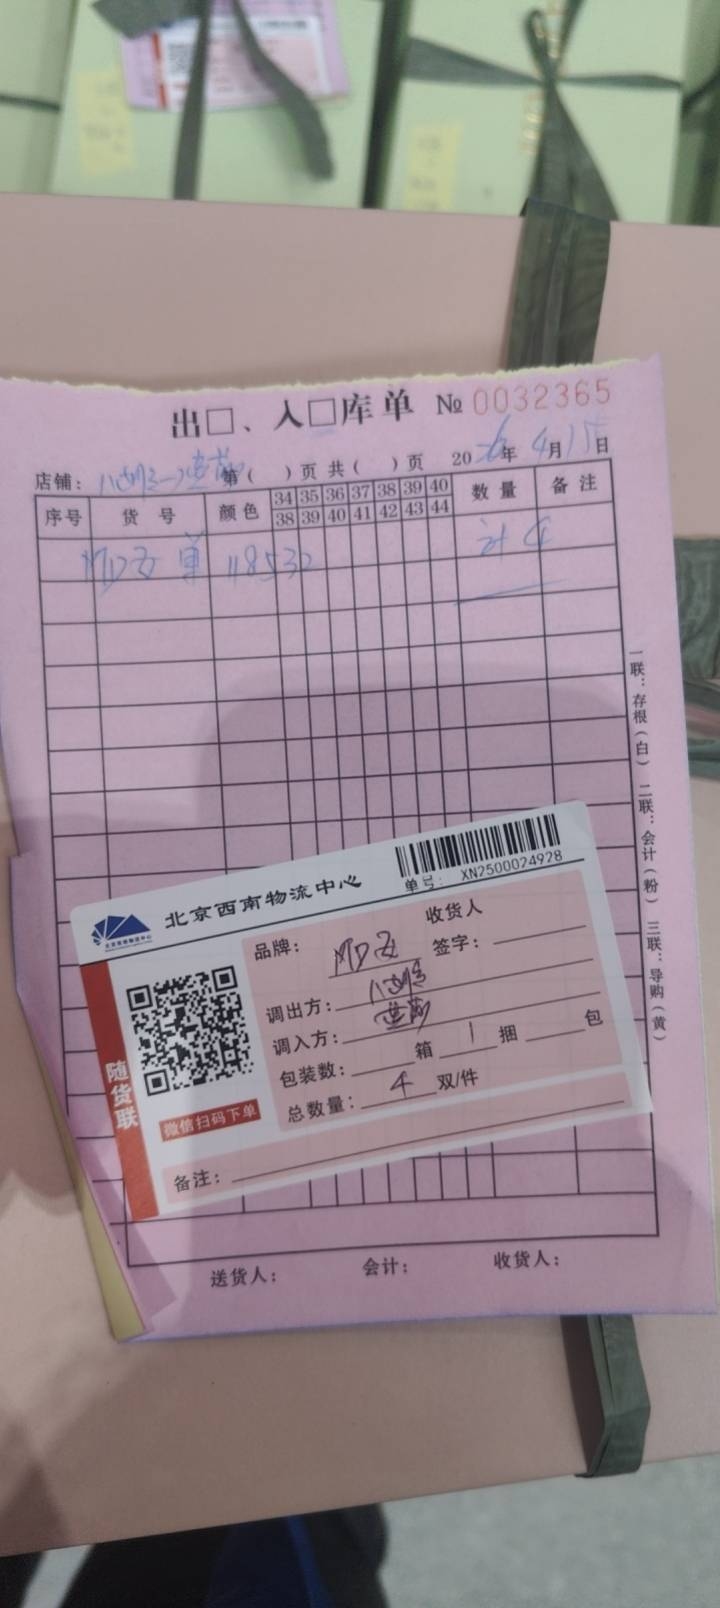 出□、入□库单 № 0032365
店铺： 第( )页 共( )页 20 年 4月15日
序号 货号 颜色 34 35 36 37 38 39 40 数量 备注
38 39 40 41 42 43 44
单 118532 计 4
一联：存根（白） 二联：会计（粉） 三联：导购（黄）
北京西南物流中心
单号： XN2500024928
随货联
微信扫码下单
品牌： 收货人
签字：
调出方：
调入方：
包装数： 箱 1 捆 包
总数量： 4 双/件
备注：
送货人： 会计： 收货人：